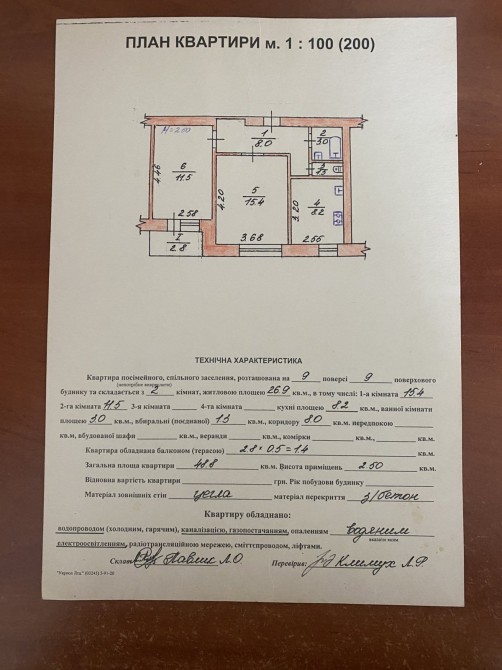 ПЛАН КВАРТИРИ м. 1 : 100 (200)
H=2.50
1
8.0
2
3.0
3
1.3
6
11.5
4.46
5
15.4
4.20
4
8.2
3.20
2.58
3.68
2.55
I
2.8
ТЕХНІЧНА ХАРАКТЕРИСТИКА
Квартира посімейного, спільного заселення, розташована на 9 поверсі 9 поверхового
(непотрібне викреслити)
будинку та складається з 2 кімнат, житловою площею 26.9 кв.м., в тому числі: 1-а кімната 15.4
2-га кімната 11.5 3-я кімната 4-та кімната кухні площею 8.2 кв.м., ванної кімнати
площею 3.0 кв.м., вбиральні (поєднаної) 1.3 кв.м., коридору 8.0 кв.м. передпокою
кв.м, вбудованої шафи кв.м., веранди кв.м., комірки кв.м., кв.м.
Квартира обладнана балконом (терасою) 2.8 × 0.5 = 1.4 кв.м.
Загальна площа квартири 48.8 кв.м. Висота приміщень 2.50
Відновна вартість квартири грн. Рік побудови будинку
Матеріал зовнішніх стін цегла матеріал перекриття з/бетон
Квартиру обладнано:
водопроводом (холодним, гарячим), каналізацією, газопостачанням, опаленням водяним
вказати яким
електроосвітленням, радіотрансляційною мережею, сміттєпроводом, ліфтами.
Склав: Павлис Л.О. Перевірив: Климух Л.Р.